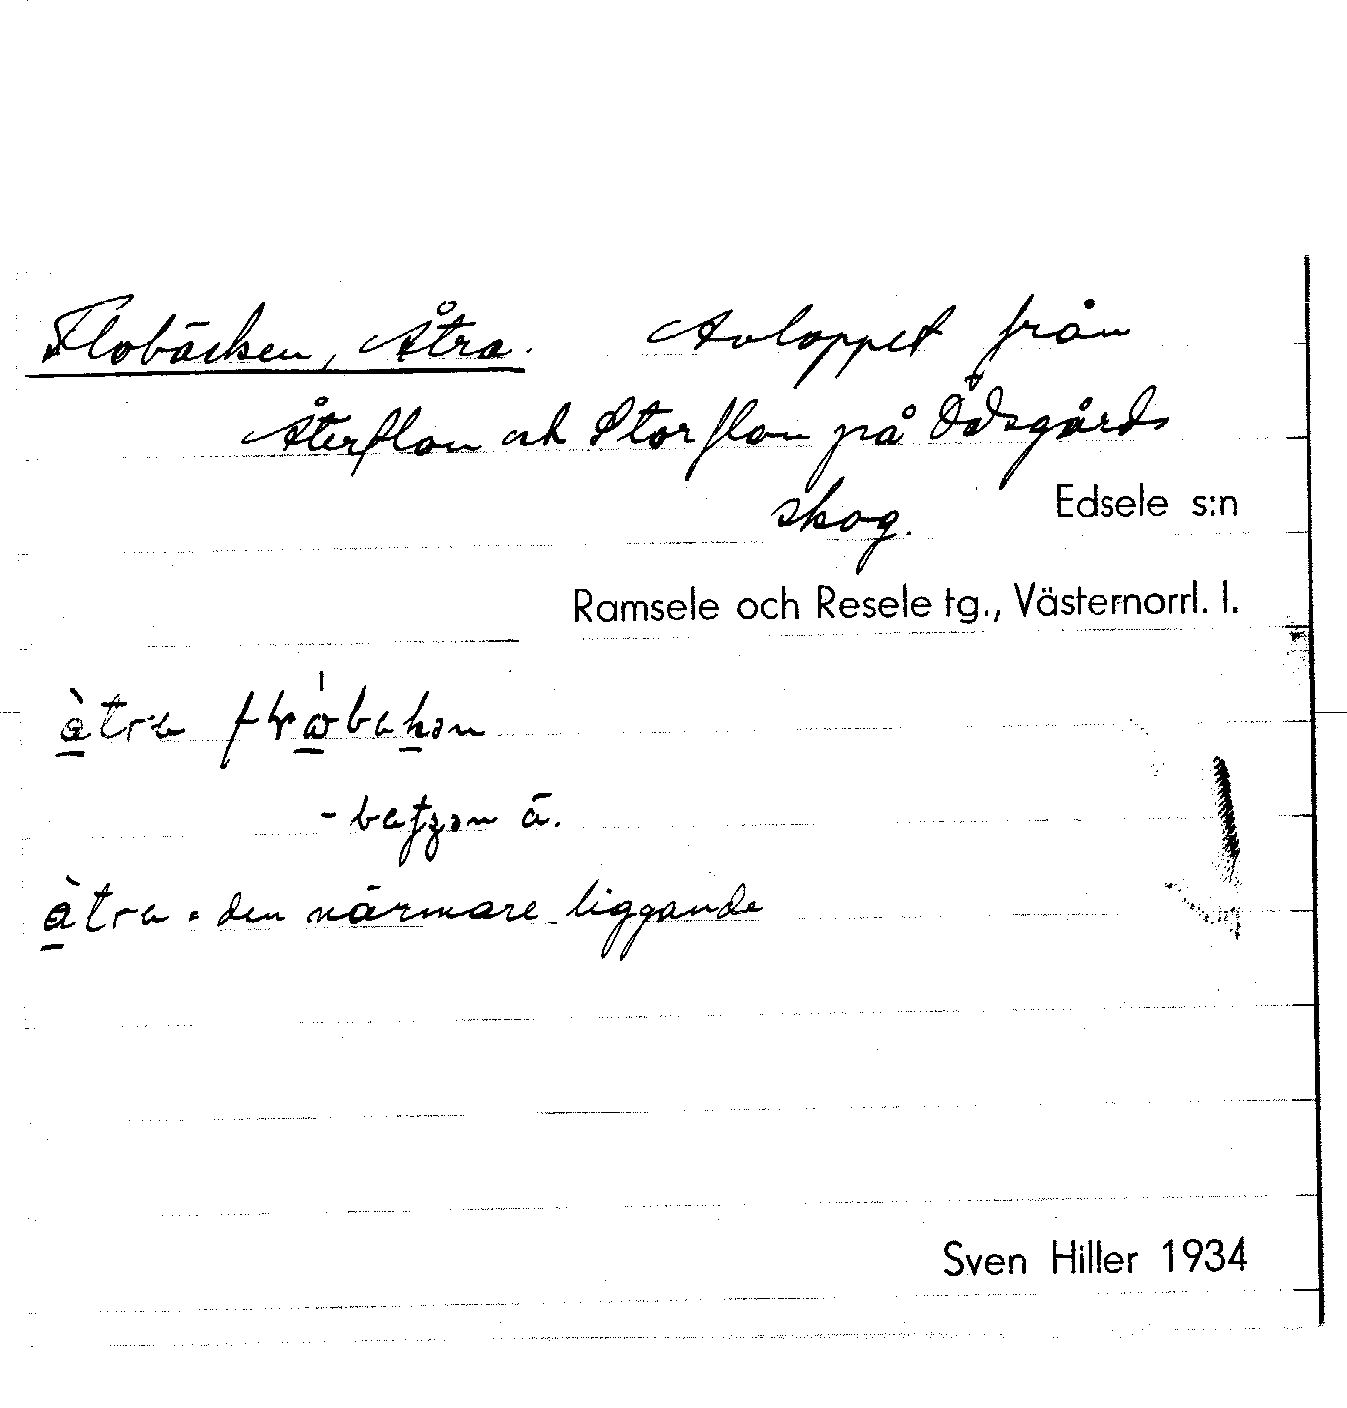 Flobäcken, Åtra. Avloppet från
Återflon och Storflon på Ödsgårds
skog. Edsele s:n
Ramsele och Resele tg., Västernorrl. l.
åtra
- ä.
åtra = den närmare liggande
Sven Hiller 1934